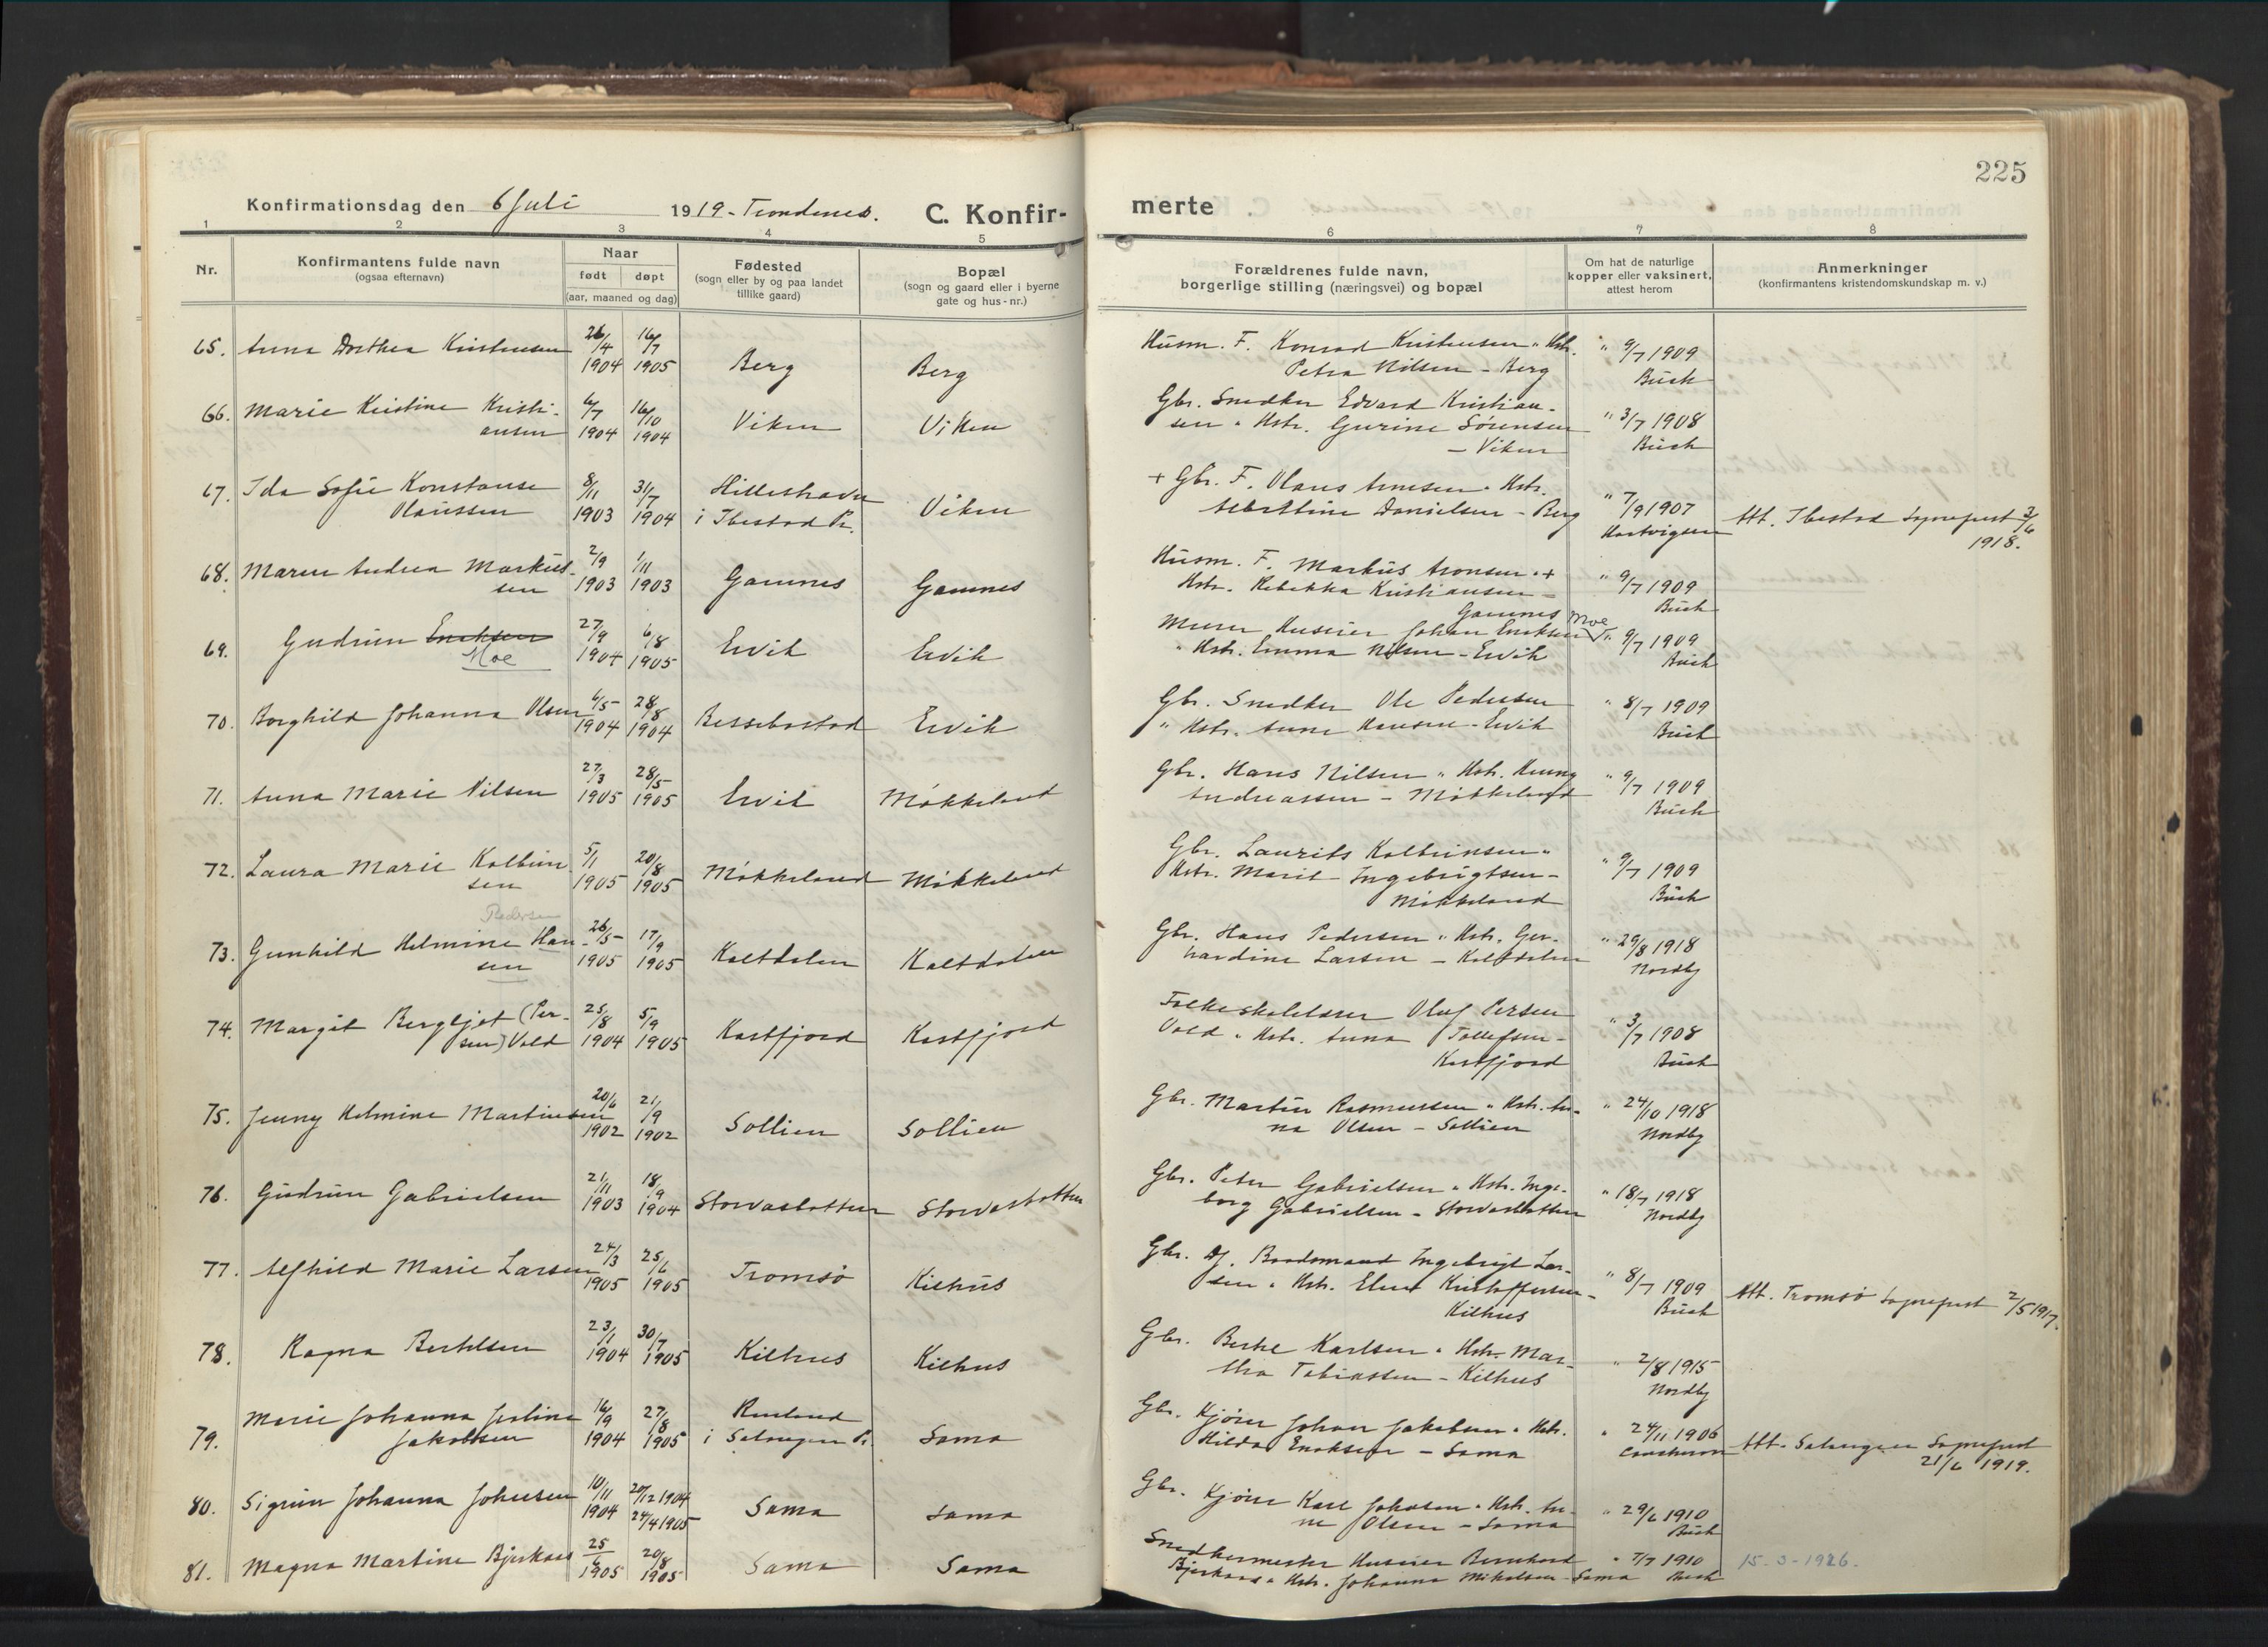 225
Konfirmationsdag den 6 Juli 1919 - Trondenes. C. Konfir-
merte
1 2 3 4 5
6 7 8
Nr.
Konfirmantens fulde navn
(ogsaa efternavn)
Naar
født døpt
(aar, maaned og dag)
Fødested
(sogn eller by og paa landet
tillike gaard)
Bopæl
(sogn og gaard eller i byerne
gate og hus-nr.)
Forældrenes fulde navn,
borgerlige stilling (næringsvei) og bopæl
Om hat de naturlige
kopper eller vaksinert,
attest herom
Anmerkninger
(konfirmantens kristendomskundskap m. v.)
65. Anna Dorthea Kristensen 26/4 1904 16/7 1905 Berg Berg
Husm. F. Konrad Kristensen " Hstr.
Petra Nilsen - Berg
" 9/7 1909
Buch
66. Marie Kristine Kristi-
ansen 6/7 1904 16/10 1904 Viken Viken
Gbr. Snedker Edvard Kristian-
sen " Hstr. Gurine Sørensen
- Viken
" 3/7 1908
Buch
67. Ida Sofie Konstanse
Olaussen 8/11 1903 31/7 1904 Hilleshavn
i Ibestad Pr. Viken
+ Gbr. F. Olaus Arnesen " Hstr.
Albertine Danielsen - Berg
" 7/9 1907
Hartvigsen
Att. Ibestad Sogneprest 3/6
1918.
68. Maren Andrea Markus-
sen 2/9 1903 1/11 1903 Gamnes Gamnes
Husm. F. Markus Aronsen " +
Hstr. Rebekka Kristiansen -
Gamnes
" 9/7 1909
Buch
69. Gudrun Enoksen
Moe 27/9 1904 6/8 1905 Ervik Ervik
Murer Huseier Johan Enoksen Moe
" Hstr. Emma Nilsen - Ervik
" 9/7 1909
Buch
70. Borghild Johanna Olsen 6/5 1904 28/8 1904 Bessebostad Ervik
Gbr. Snedker Ole Pedersen
" Hstr. Anne Hansen - Ervik
" 8/7 1909
Buch
71. Anna Marie Nilsen 27/3 1905 28/5 1905 Ervik Møkkeland
Gbr. Hans Nilsen " Hstr.
Andreassen - Møkkeland
" 9/7 1909
Buch
72. Laura Marie Kolbein-
sen 5/1 1905 20/8 1905 Møkkeland Møkkeland
Gbr. Laurits Kolbeinsen "
Hstr. Marit Ingebrigtsen -
Møkkeland
" 9/7 1909
Buch
Pedersen
73. Gunhild Helmine Han-
sen 26/5 1905 17/9 1905 Kaltdalen Kaltdalen
Gbr. Hans Pedersen " Hstr. Ger-
hardine Larsen - Kaltdalen
" 29/8 1918
Nordby
74. Margit Bergljot (Per-
sen) Vold 25/8 1904 5/9 1905 Kastfjord Kastfjord
Folkeskolelærer Oluf Persen
Vold " Hstr. Anna Tollefsen -
Kastfjord
" 3/7 1908
Buch
75. Jenny Helmine Martinsen 20/6 1902 21/9 1902 Sollien Sollien
Gbr. Martin Rasmussen " Hstr. An-
na Olsen - Sollien
" 24/10 1918
Nordby
76. Gudrun Gabrielsen 21/11 1903 18/9 1904 Storvasbotten Storvasbotten
Gbr. Peter Gabrielsen " Hstr. Inge-
borg Gabrielsen - Storvasbotten
" 18/7 1918
Nordby
77. Alfhild Marie Larsen 24/3 1905 25/6 1905 Tromsø Kilhus
Gbr. Baadsmand Ingebrigt Lar-
sen " Hstr. Elen Kristoffersen -
Kilhus
" 8/7 1909
Buch
Att. Tromsø Sogneprest 2/5 1917.
78. Ragna Berthelsen 23/1 1904 30/7 1905 Kilhus Kilhus
Gbr. Bertel Karlsen " Hstr. Mar-
tha Tobiassen - Kilhus
" 2/8 1915
Nordby
79. Marie Johanna Jakobsen 16/9 1904 27/8 1905
i Salangen Pr. Sama
Gbr. Kjører Johan Jakobsen " Hstr.
Hilda Enoksen - Sama
" 24/11 1906
Att. Salangen Sogneprest
21/6 1919.
80. Sigrun Johanna Johnsen 10/11 1904 20/12 1904
24/4 1905 Sama Sama
Gbr. Kjører Karl Johnsen " Hstr. An-
ne Olsen - Sama
" 29/6 1910
Buch
81. Magna Martine Bjerkaas 25/6 1905 20/8 1905 Sama Sama
Snedkermester Huseier Bernhard
Bjerkaas " Hstr. Johanna Mikalsen - Sama
" 7/7 1910
Buch
15-3-1926.